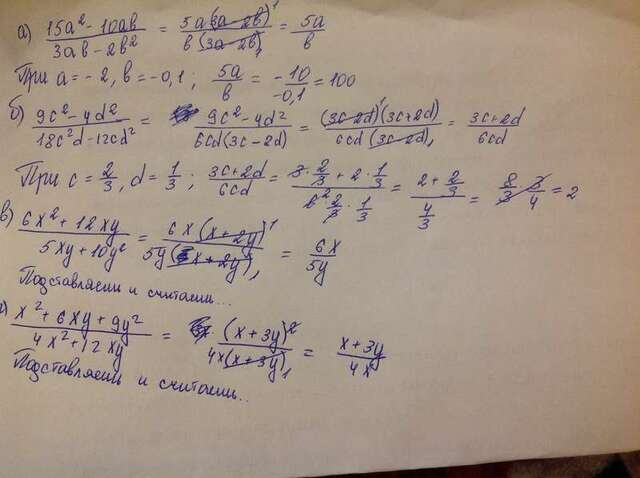 а) (15a² - 10ab)/(3ab - 2b²) = (5a(3a - 2b))/(b(3a - 2b)) = 5a/b
При a = -2, b = -0,1; 5a/b = -10/-0,1 = 100
б) (9c² - 4d²)/(18c²d - 12cd²) = (9c² - 4d²)/(6cd(3c - 2d)) = ((3c - 2d)(3c + 2d))/(6cd(3c - 2d)) = (3c + 2d)/6cd
При c = 2/3, d = 1/3; (3c + 2d)/6cd = (3 · 2/3 + 2 · 1/3)/(6 · 2/3 · 1/3) = (2 + 2/3)/(4/3) = 8/3 · 3/4 = 2
в) (6x² + 12xy)/(5xy + 10y²) = (6x(x + 2y))/(5y(x + 2y)) = 6x/5y
Подставляем и считаем...
г) (x² + 6xy + 9y²)/(4x² + 12xy) = (x + 3y)²/(4x(x + 3y)) = (x + 3y)/4x
Подставляем и считаем..